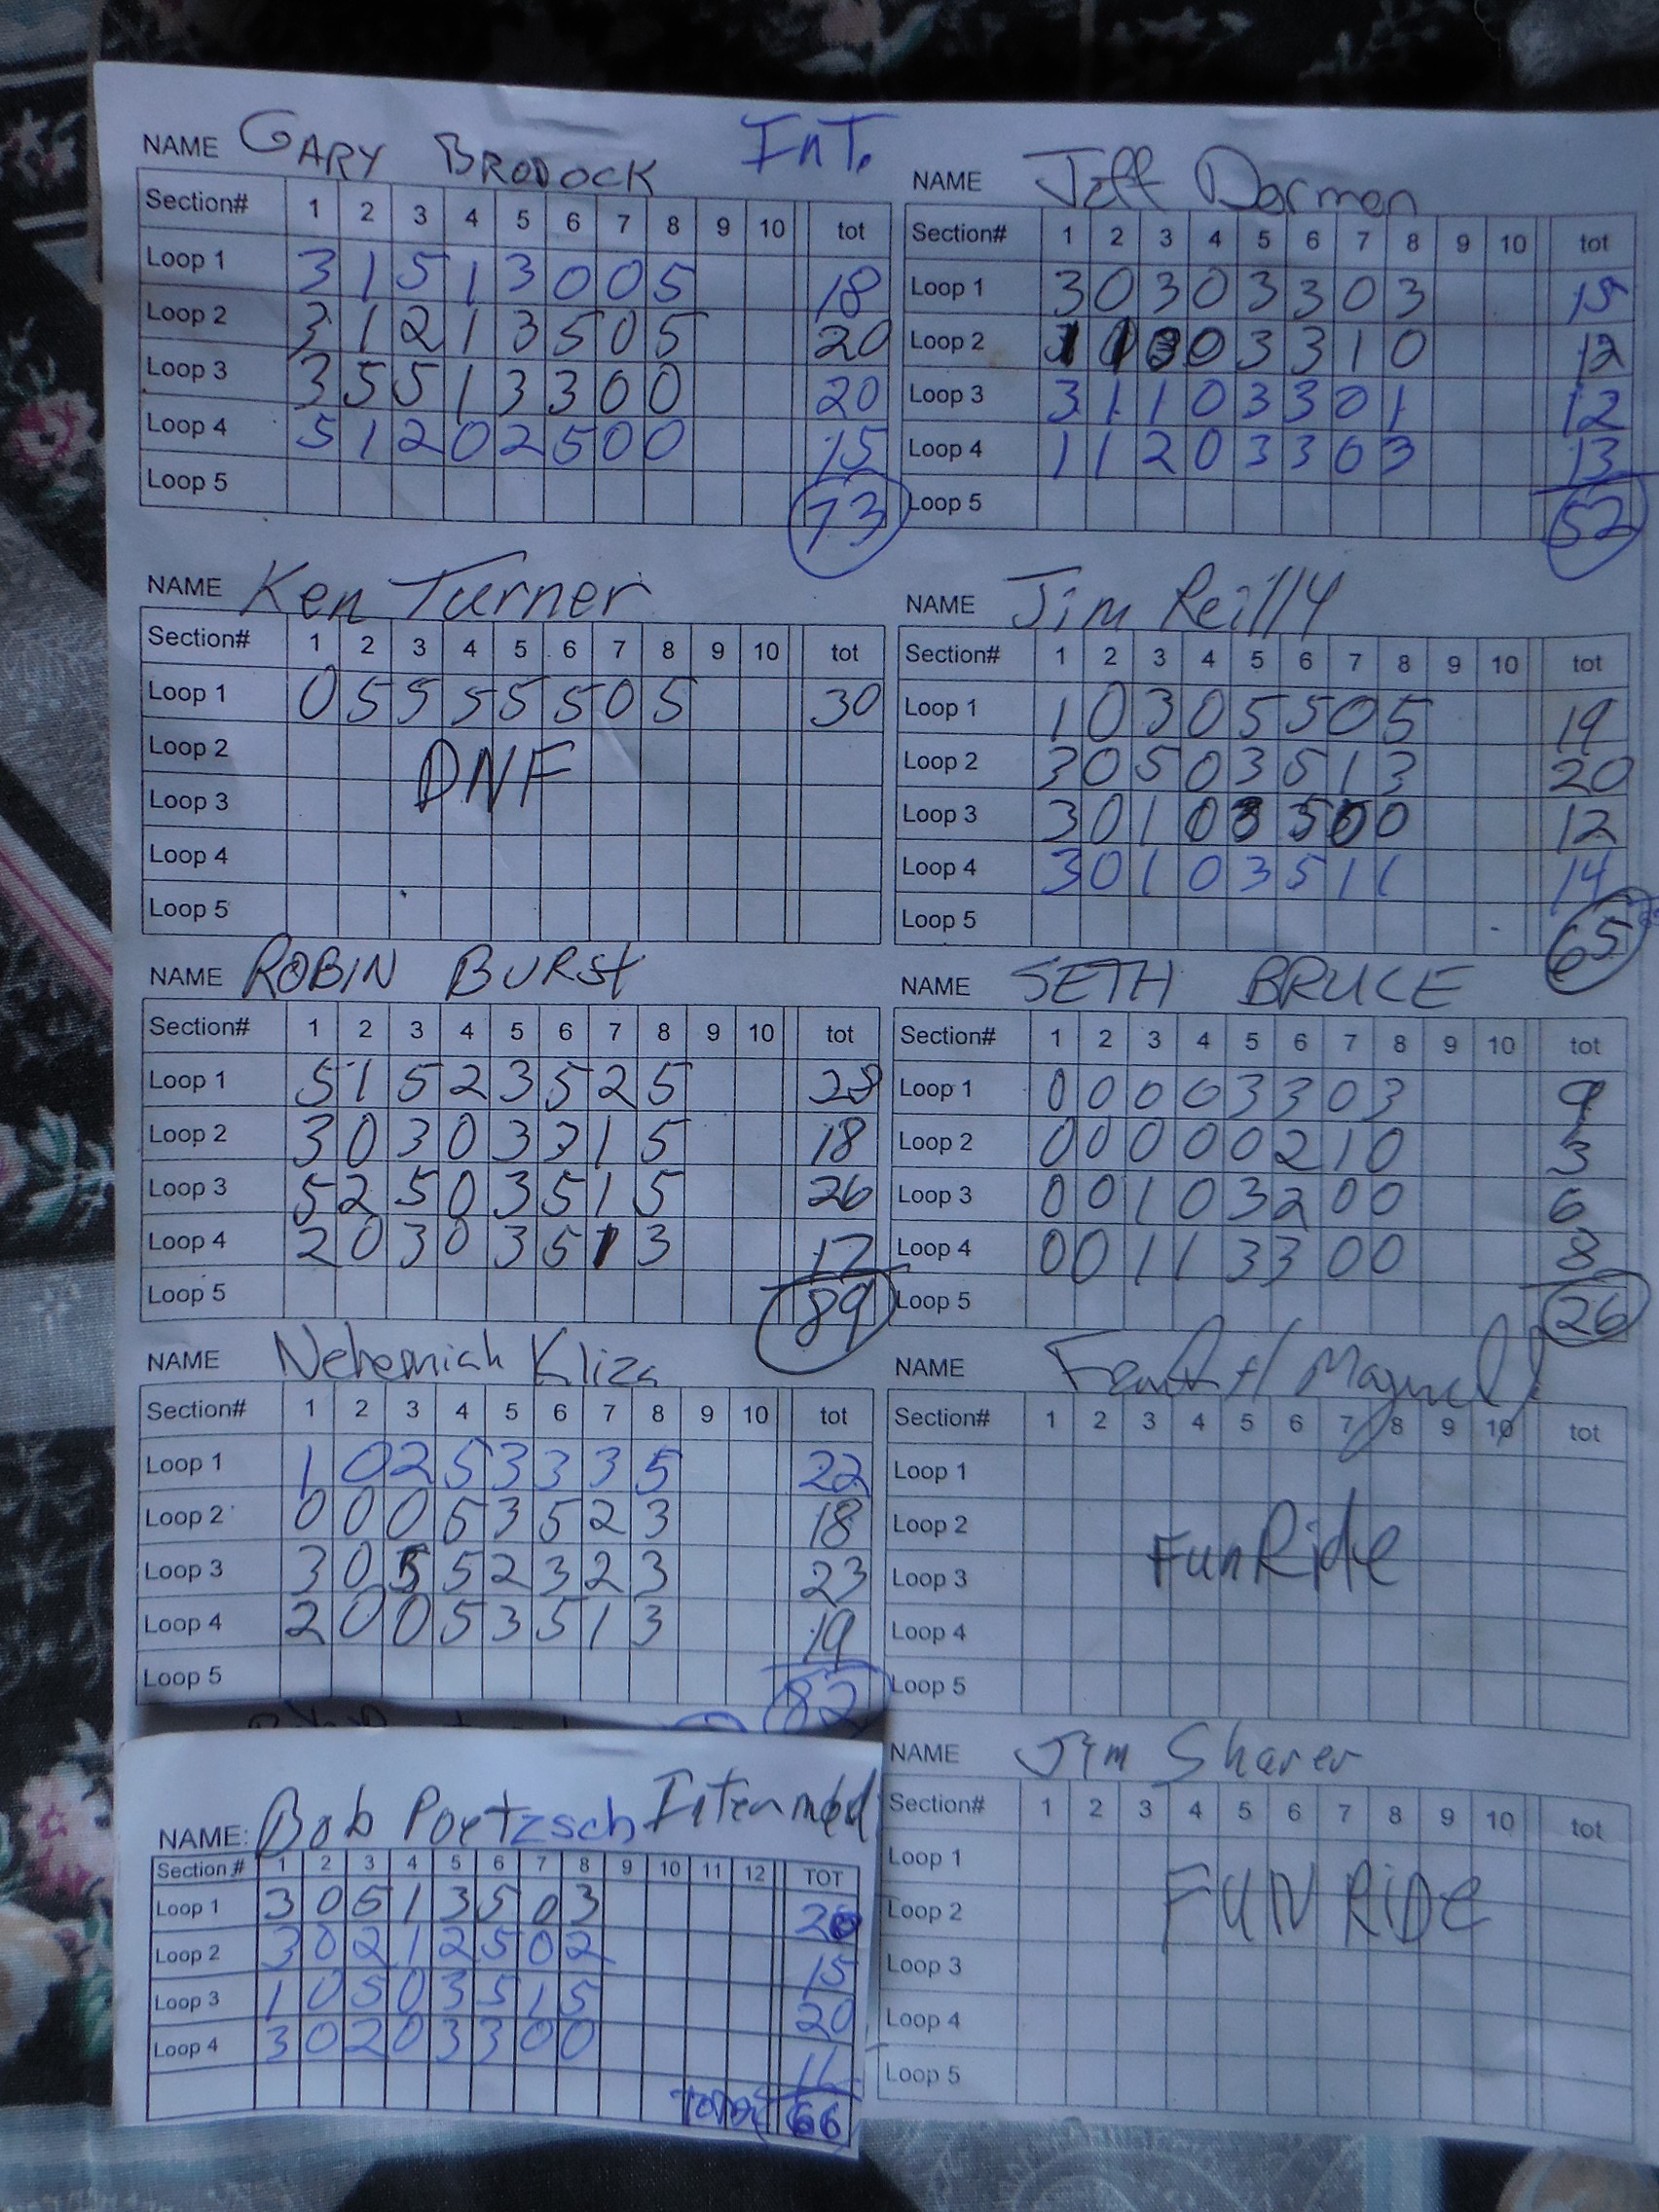 NAME GARY BRODOCK InT.
Section# 1 2 3 4 5 6 7 8 9 10 tot
Loop 1 3 1 5 1 3 0 0 5 18
Loop 2 3 1 2 1 3 5 0 5 20
Loop 3 3 5 5 1 3 3 0 0 20
Loop 4 5 1 2 0 2 5 0 0 15
Loop 5 73
NAME Jeff Dorman
Section# 1 2 3 4 5 6 7 8 9 10 tot
Loop 1 3 0 3 0 3 3 0 3 15
Loop 2 0 3 3 1 0 12
Loop 3 3 1 1 0 3 3 0 1 12
Loop 4 1 1 2 0 3 3 0 3 13
Loop 5 52
NAME Ken Turner
Section# 1 2 3 4 5 6 7 8 9 10 tot
Loop 1 0 5 5 5 5 5 0 5 30
Loop 2
DNF
Loop 3
Loop 4
Loop 5
NAME Jim Reilly
Section# 1 2 3 4 5 6 7 8 9 10 tot
Loop 1 1 0 3 0 5 5 0 5 19
Loop 2 3 0 5 0 3 5 1 3 20
Loop 3 3 0 1 0 3 5 0 0 12
Loop 4 3 0 1 0 3 5 1 1 14
Loop 5 65
NAME ROBIN BURSt
Section# 1 2 3 4 5 6 7 8 9 10 tot
Loop 1 5 1 5 2 3 5 2 5 28
Loop 2 3 0 3 0 3 3 1 5 18
Loop 3 5 2 5 0 3 5 1 5 26
Loop 4 2 0 3 0 3 5 1 3 17
Loop 5 89
NAME SETH BRUCE
Section# 1 2 3 4 5 6 7 8 9 10 tot
Loop 1 0 0 0 0 3 3 0 3 9
Loop 2 0 0 0 0 0 2 1 0 3
Loop 3 0 0 1 0 3 2 0 0 6
Loop 4 0 0 1 1 3 3 0 0 8
Loop 5 26
NAME Nehemiah Kliza
Section# 1 2 3 4 5 6 7 8 9 10 tot
Loop 1 1 0 2 5 3 3 3 5 22
Loop 2 0 0 0 5 3 5 2 3 18
Loop 3 3 0 5 5 2 3 2 3 23
Loop 4 2 0 0 5 3 5 1 3 19
Loop 5 82
NAME
Section# 1 2 3 4 5 6 7 8 9 10 tot
Loop 1
Loop 2
Fun Ride
Loop 3
Loop 4
Loop 5
NAME: Bob Poetzsch Intermed
Section # 1 2 3 4 5 6 7 8 9 10 11 12 TOT
Loop 1 3 0 5 1 3 5 0 3 20
Loop 2 3 0 2 1 2 5 0 2 15
Loop 3 1 0 5 0 3 5 1 5 20
Loop 4 3 0 2 0 3 3 0 0 11
Total 66
NAME Jim Sharer
Section# 1 2 3 4 5 6 7 8 9 10 tot
Loop 1
Loop 2
FUN RiDe
Loop 3
Loop 4
Loop 5